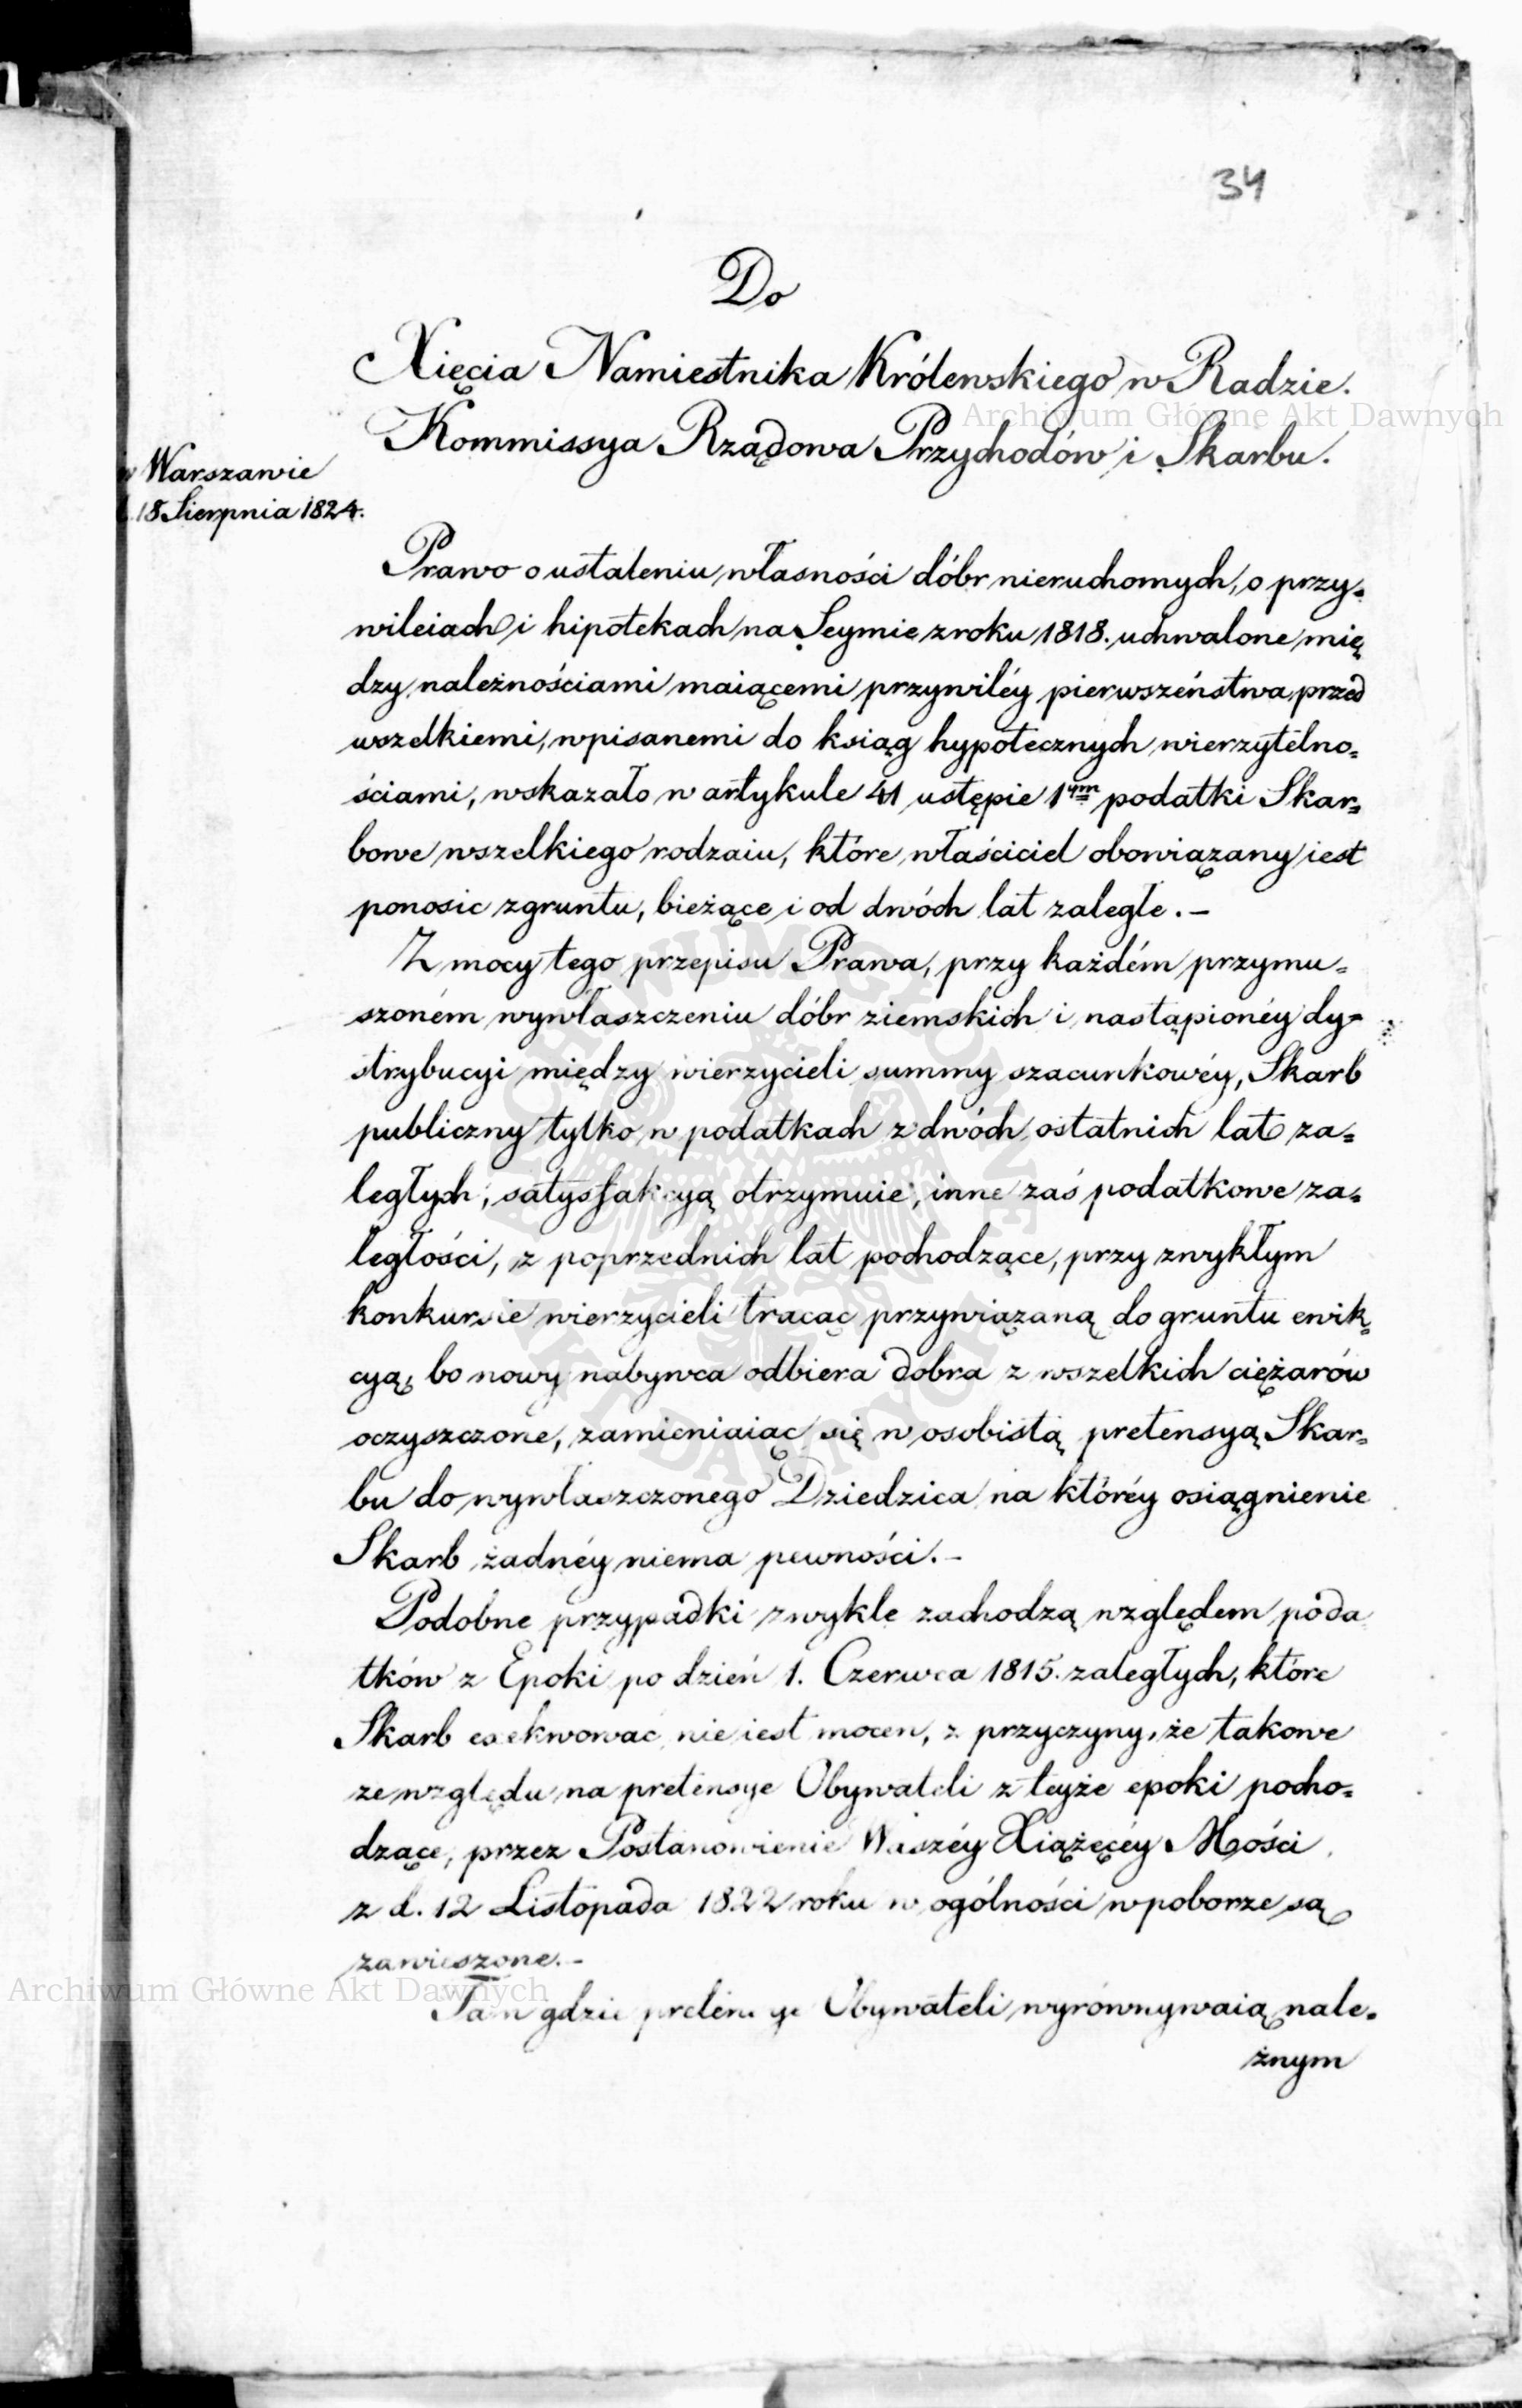 34
Do
Xięcia Namiestnika Królewskiego w Radzie.
Kommissya Rządowa Przychodów i Skarbu.
w Warszawie
d. 18 Sierpnia 1824.
Prawo o ustaleniu własności dóbr nieruchomych, o przy=
wileiach i hipotekach na Seymie z roku 1818. uchwalone mię
dzy należnościami maiącemi przywiléy pierwszeństwa przed
wszelkiemi, wpisanemi do ksiąg hypotecznych wierzytelno=
ściami, wskazało w artykule 41 ustępie 1ym podatki Skar=
bowe wszelkiego rodzaiu, które właściciel obowiązany iest
ponosic z gruntu, bieżące i od dwóch lat zaległe. –
Z mocy tego przepisu Prawa, przy każdém przymu=
szoném wywłaszczeniu dóbr ziemskich i nastąpionéy dy=
strybucyi między wierzycieli summy szacunkowéy, Skarb
publiczny tylko w podatkach z dwóch ostatnich lat za=
ległych, satysfakcyą otrzymuie, inne zaś podatkowe za=
ległości, z poprzednich lat pochodzące, przy zwykłym
konkursie wierzycieli tracąc przywiązaną do gruntu ewik
cyą, bo nowy nabywca odbiera dobra z wszelkich ciężarów
oczyszczone, zamieniaiąc się w osobistą pretensyą Skar=
bu do wywłaszczonego Dziedzica na któréy osiągnienie
Skarb żadnéy niema pewności. –
Podobne przypadki zwykle zachodzą względem poda
tków z Epoki po dzień 1. Czerwca 1815. zaległych, które
Skarb exekwowac nie iest mocen, z przyczyny, że takowe
ze względu na pretensye Obywateli z teyże epoki pocho=
dzące, przez Postanowienie Waszéy Xiążęcéy Mości
z d. 12 Listopada 1822 roku w ogólności w poborze są
zawieszone. –
Tam gdzie pretensye Obywateli wyrównywaią nale=
żnym
Archiwum Główne Akt Dawnych
Archiwum Główne Akt Dawnych
ARCHIWUM GŁÓWNE
AKT DAWNYCH